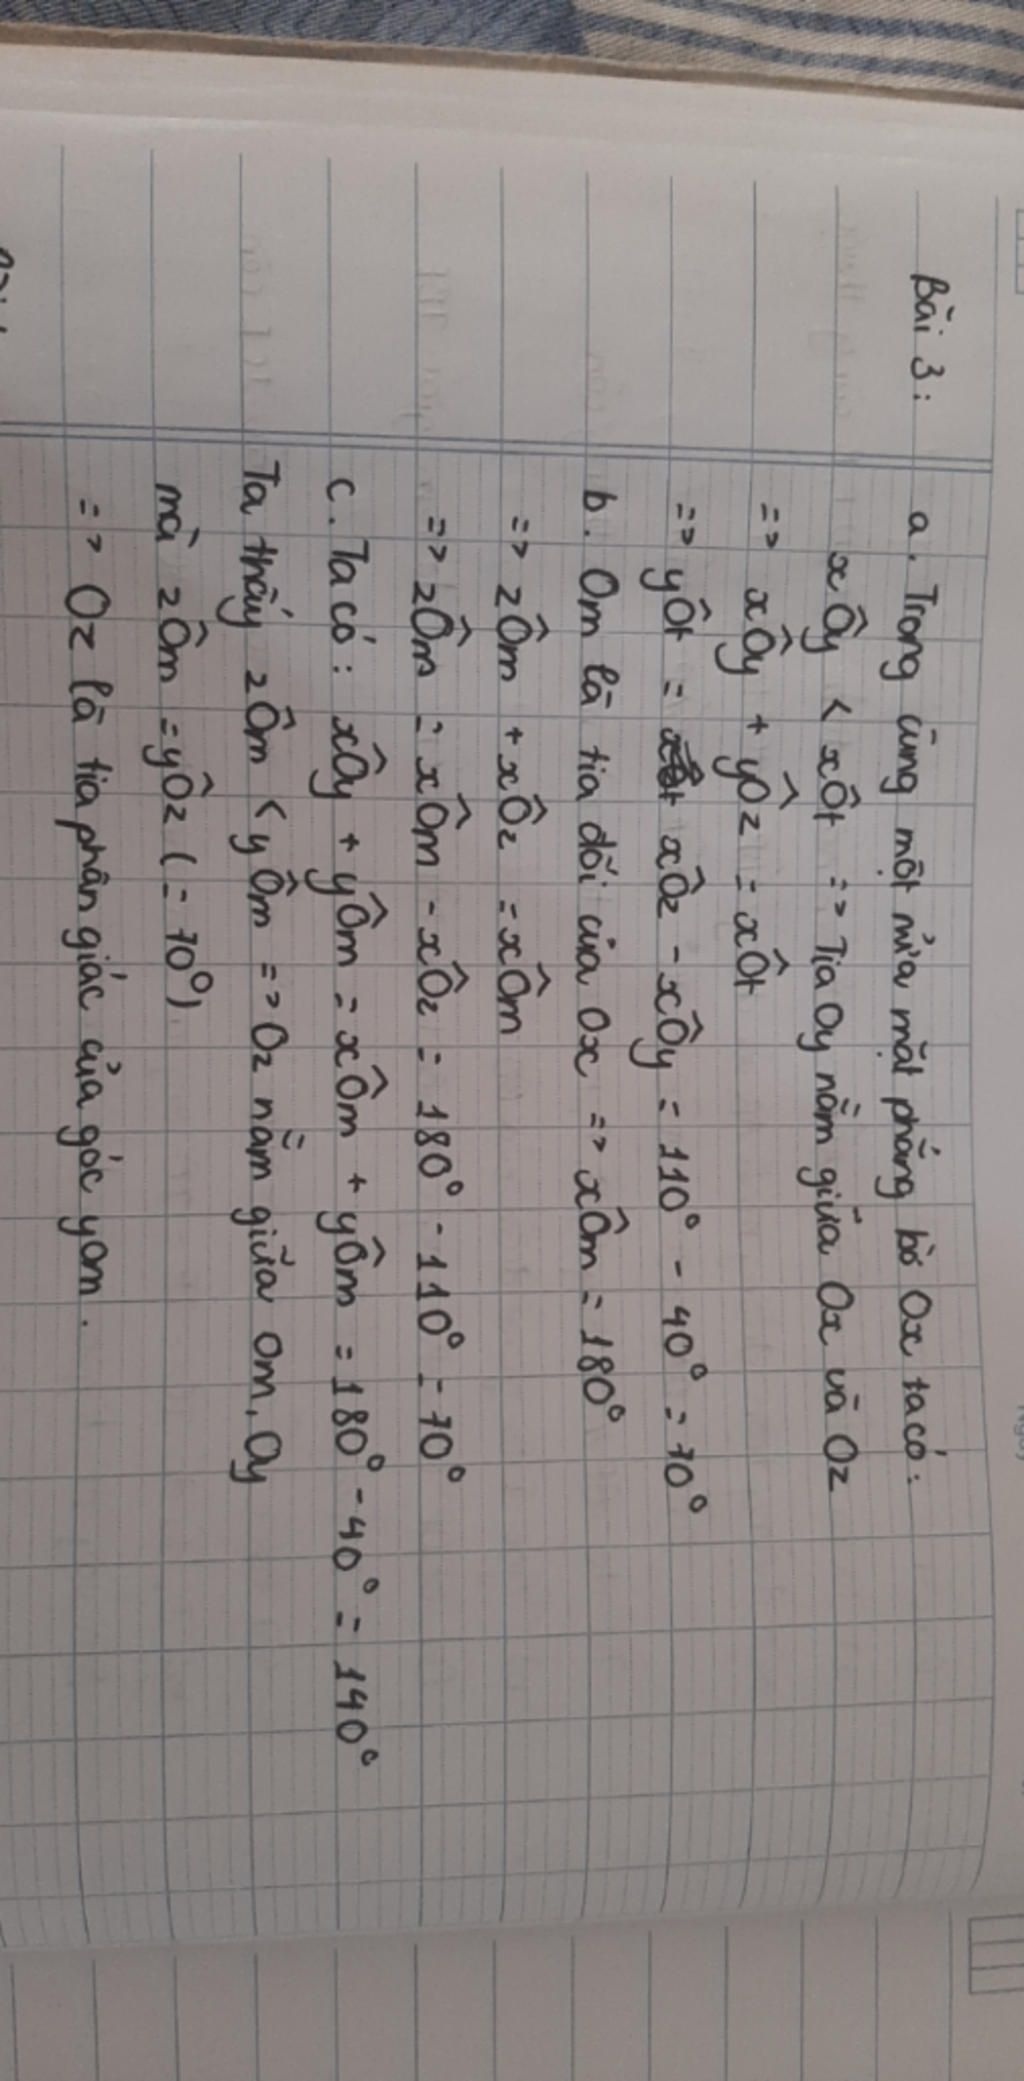 Bài 3:
a. Trong cùng một nửa mặt phẳng bờ Ox ta có:
xÔy < xÔt => Tia Oy nằm giữa Ox và Oz
=> xÔy + yÔz = xÔt
=> yÔt = xÔz - xÔy = 110° - 40° = 70°
b. Om là tia đối của Ox => xÔm = 180°
=> zÔm + xÔz = xÔm
=> zÔm = xÔm - xÔz = 180° - 110° = 70°
c. Ta có: xÔy + yÔm = xÔm + yÔm = 180° - 40° = 140°
Ta thấy zÔm < yÔm => Oz nằm giữa Om, Oy
mà zÔm = yÔz (= 70°)
=> Oz là tia phân giác của góc yOm.